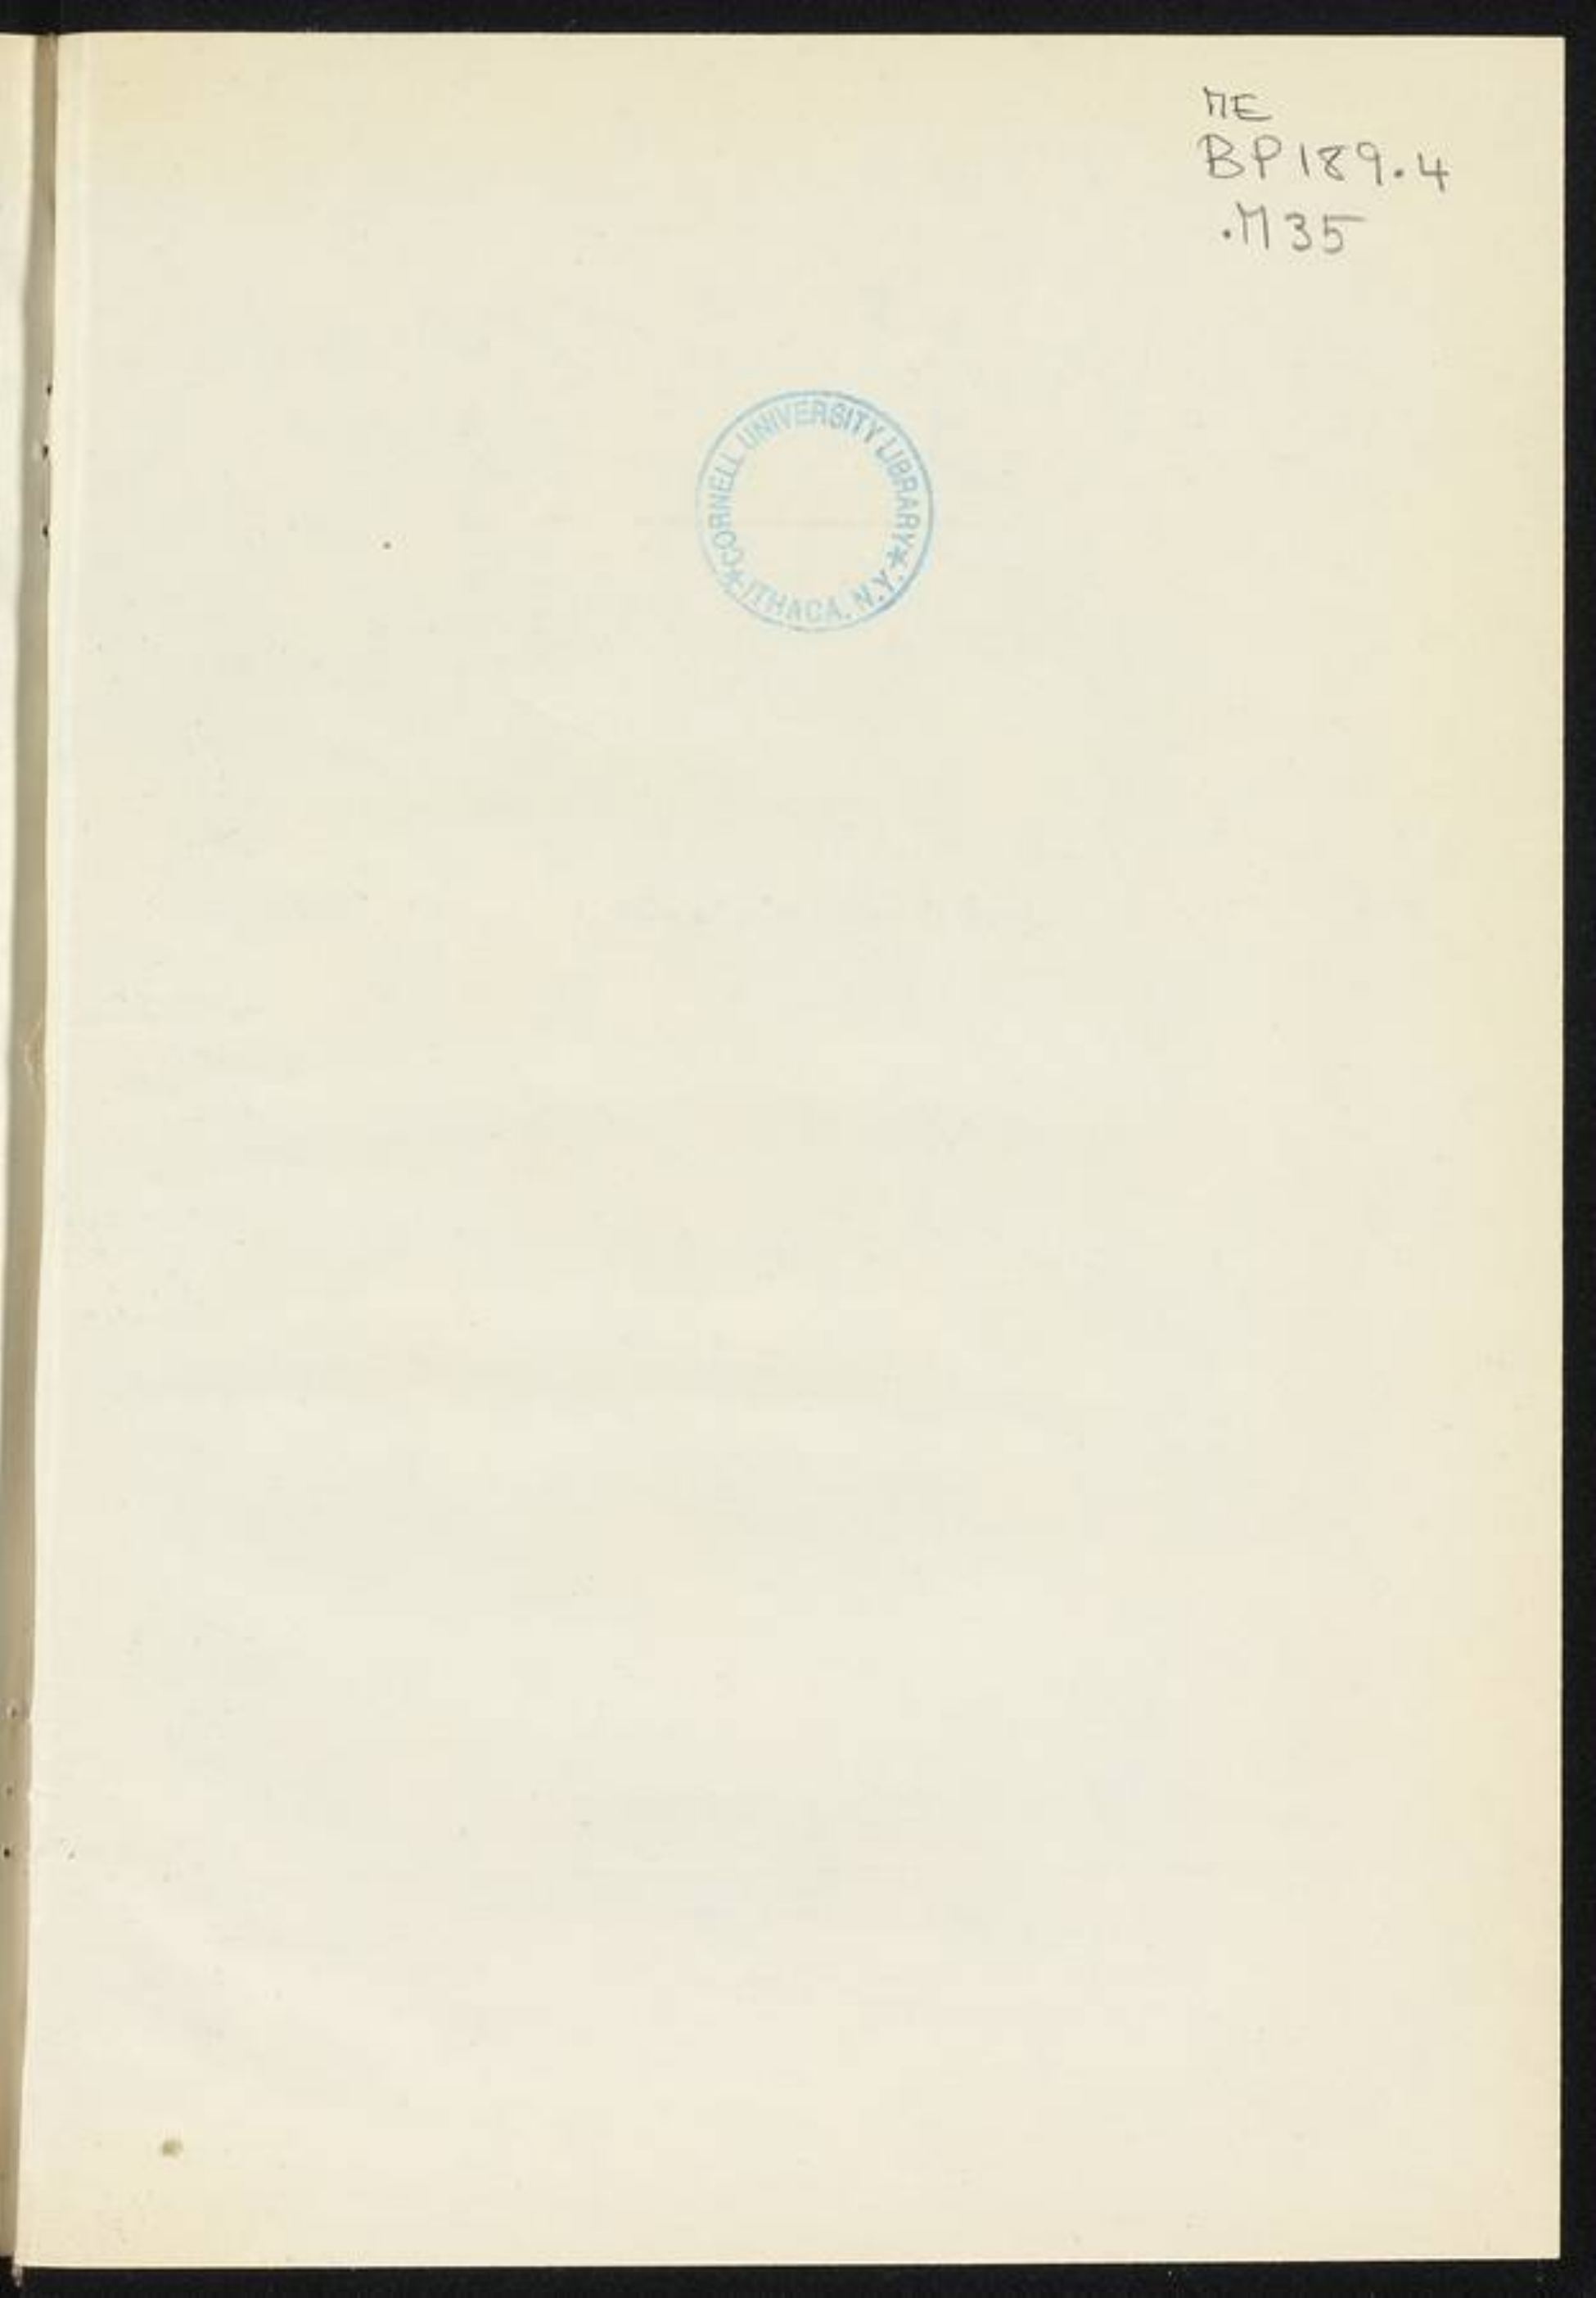 ME
BP189.4
.M35
CORNELL UNIVERSITY LIBRARY
* ITHACA, N.Y. *